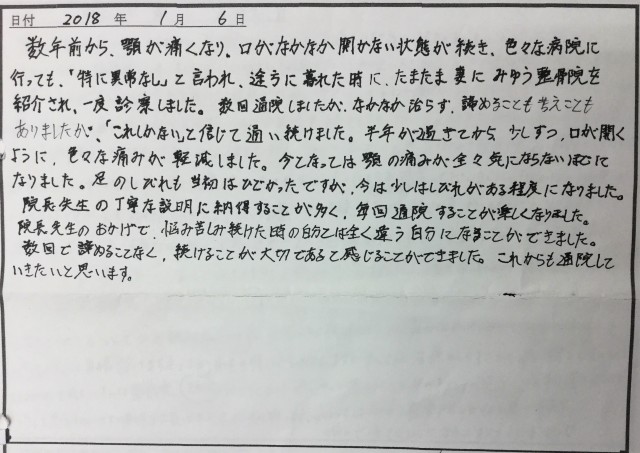 日付 2018 年 1 月 6 日
数年前から、顎が痛くなり、口がなかなか開かない状態が続き、色々な病院に
行っても、「特に異常なし」と言われ、途方に暮れた時に、たまたま妻にみゆう整骨院を
紹介され、一度診察しました。数回通院しましたが、なかなか治らず、諦めることも考えことも
ありましたが、「これしかない」と信じて通い続けました。半年が過ぎてから少しずつ、口が開く
ように、色々な痛みが軽減しました。今となっては顎の痛みが全々気にならないほどに
なりました。足のしびれも当初はひどかったですが、今は少しはしびれがある程度になりました。
院長先生の丁寧な説明に納得することが多く、毎回通院することが楽しくなりました。
院長先生のおかげで、悩み苦しみ続けた時の自分とは全く違う自分になることができました。
数回で諦めることなく、続けることが大切であると感じることができました。これからも通院して
いきたいと思います。